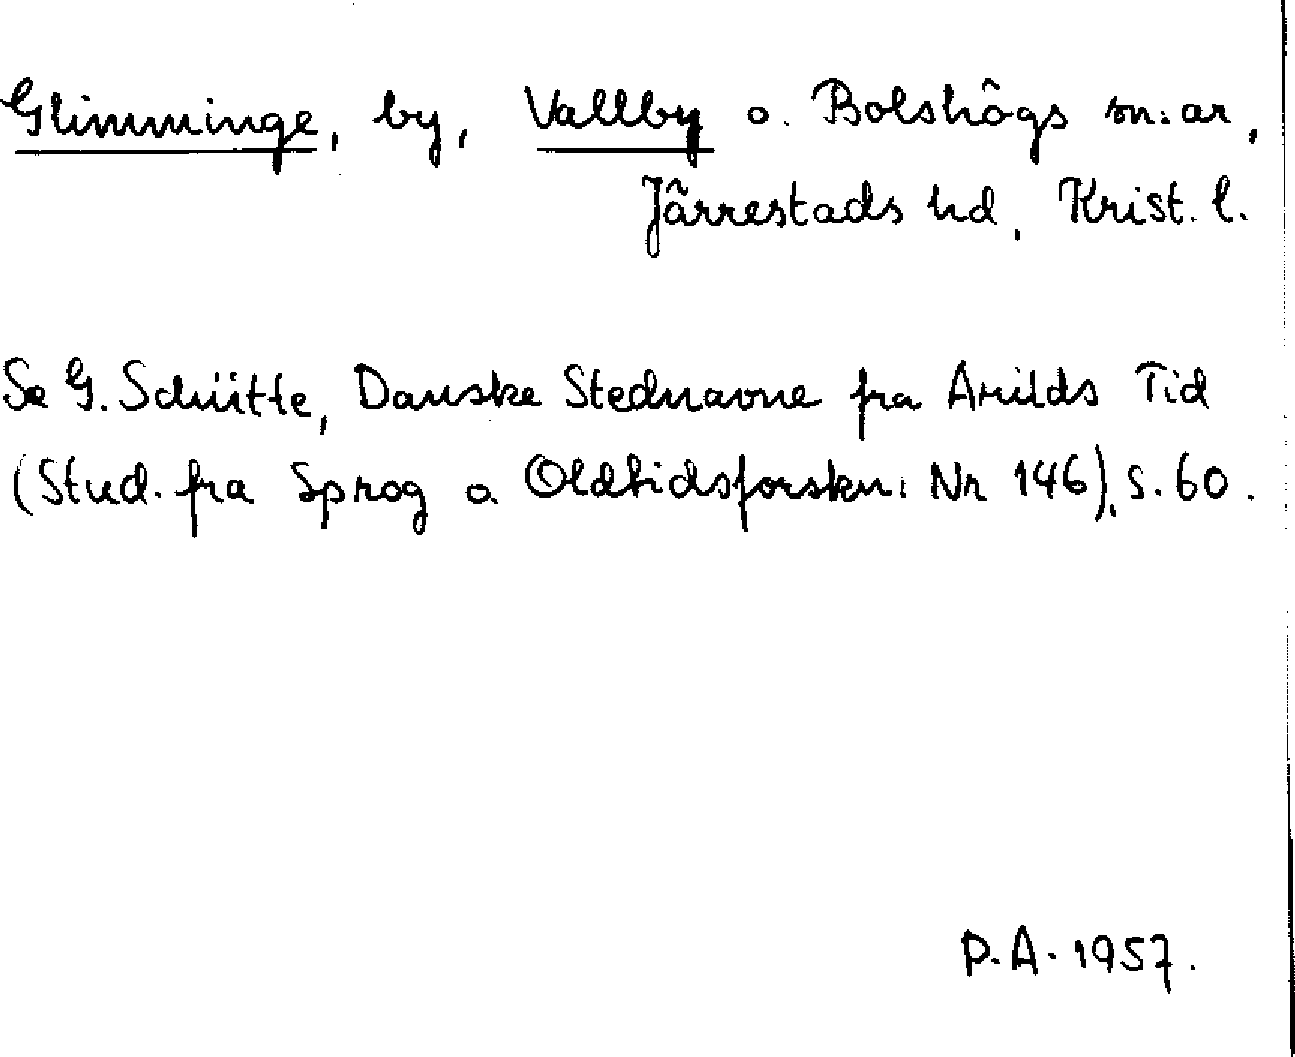 Glimminge, by, Vallby o. Bolshögs sn:ar,
Järrestads hd, Krist. l.
Se G. Schütte, Danske Stednavne fra Arilds Tid
(Stud. fra Sprog o Oldtidsforskn: Nr 146), s. 60.
P.A. 1957.